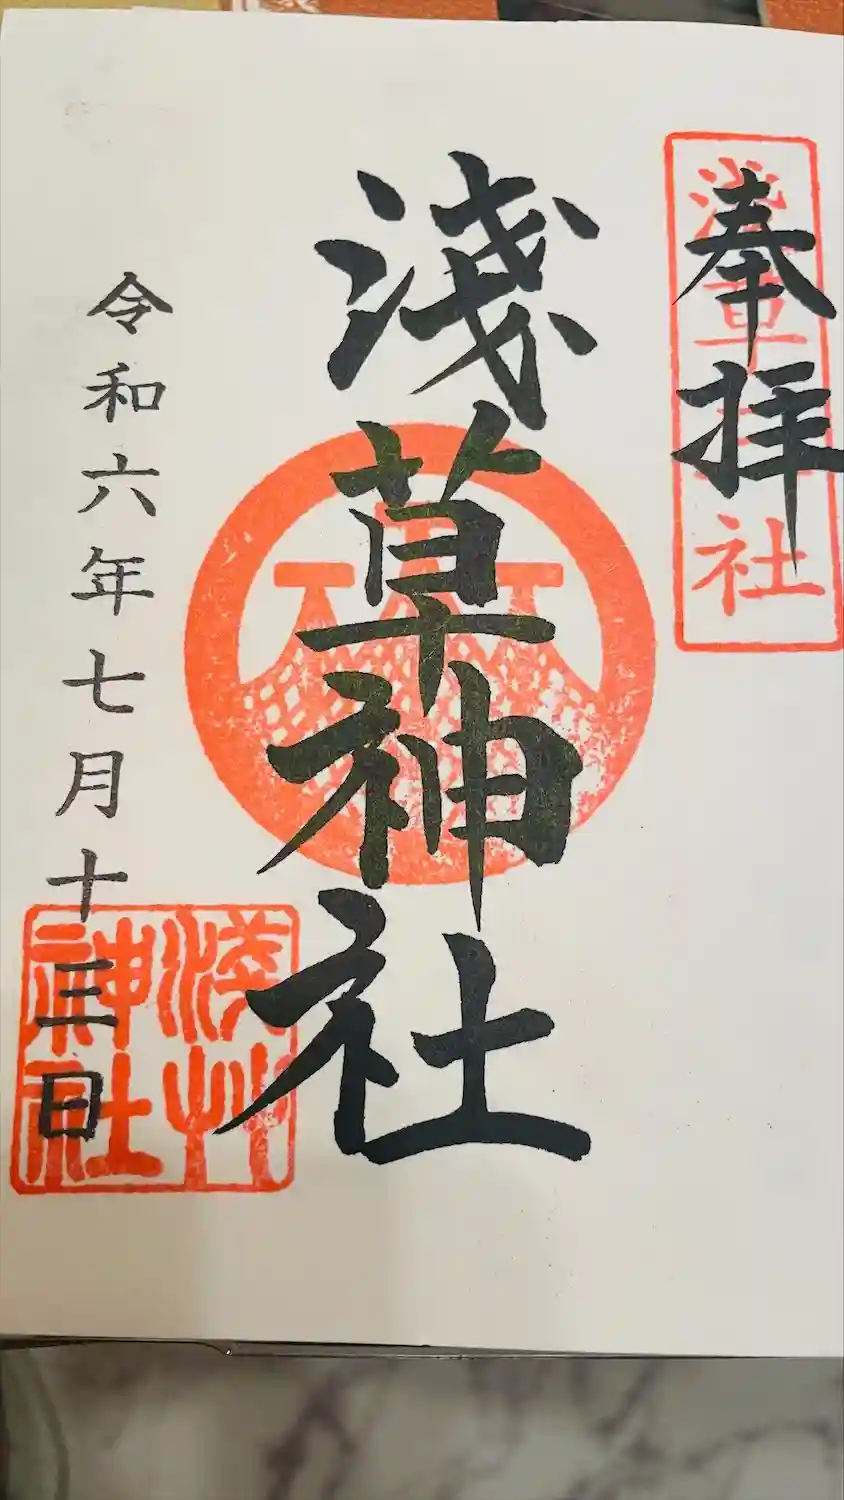 奉拝
淺草神社
淺草神社
令和六年七月十三日
淺草神社